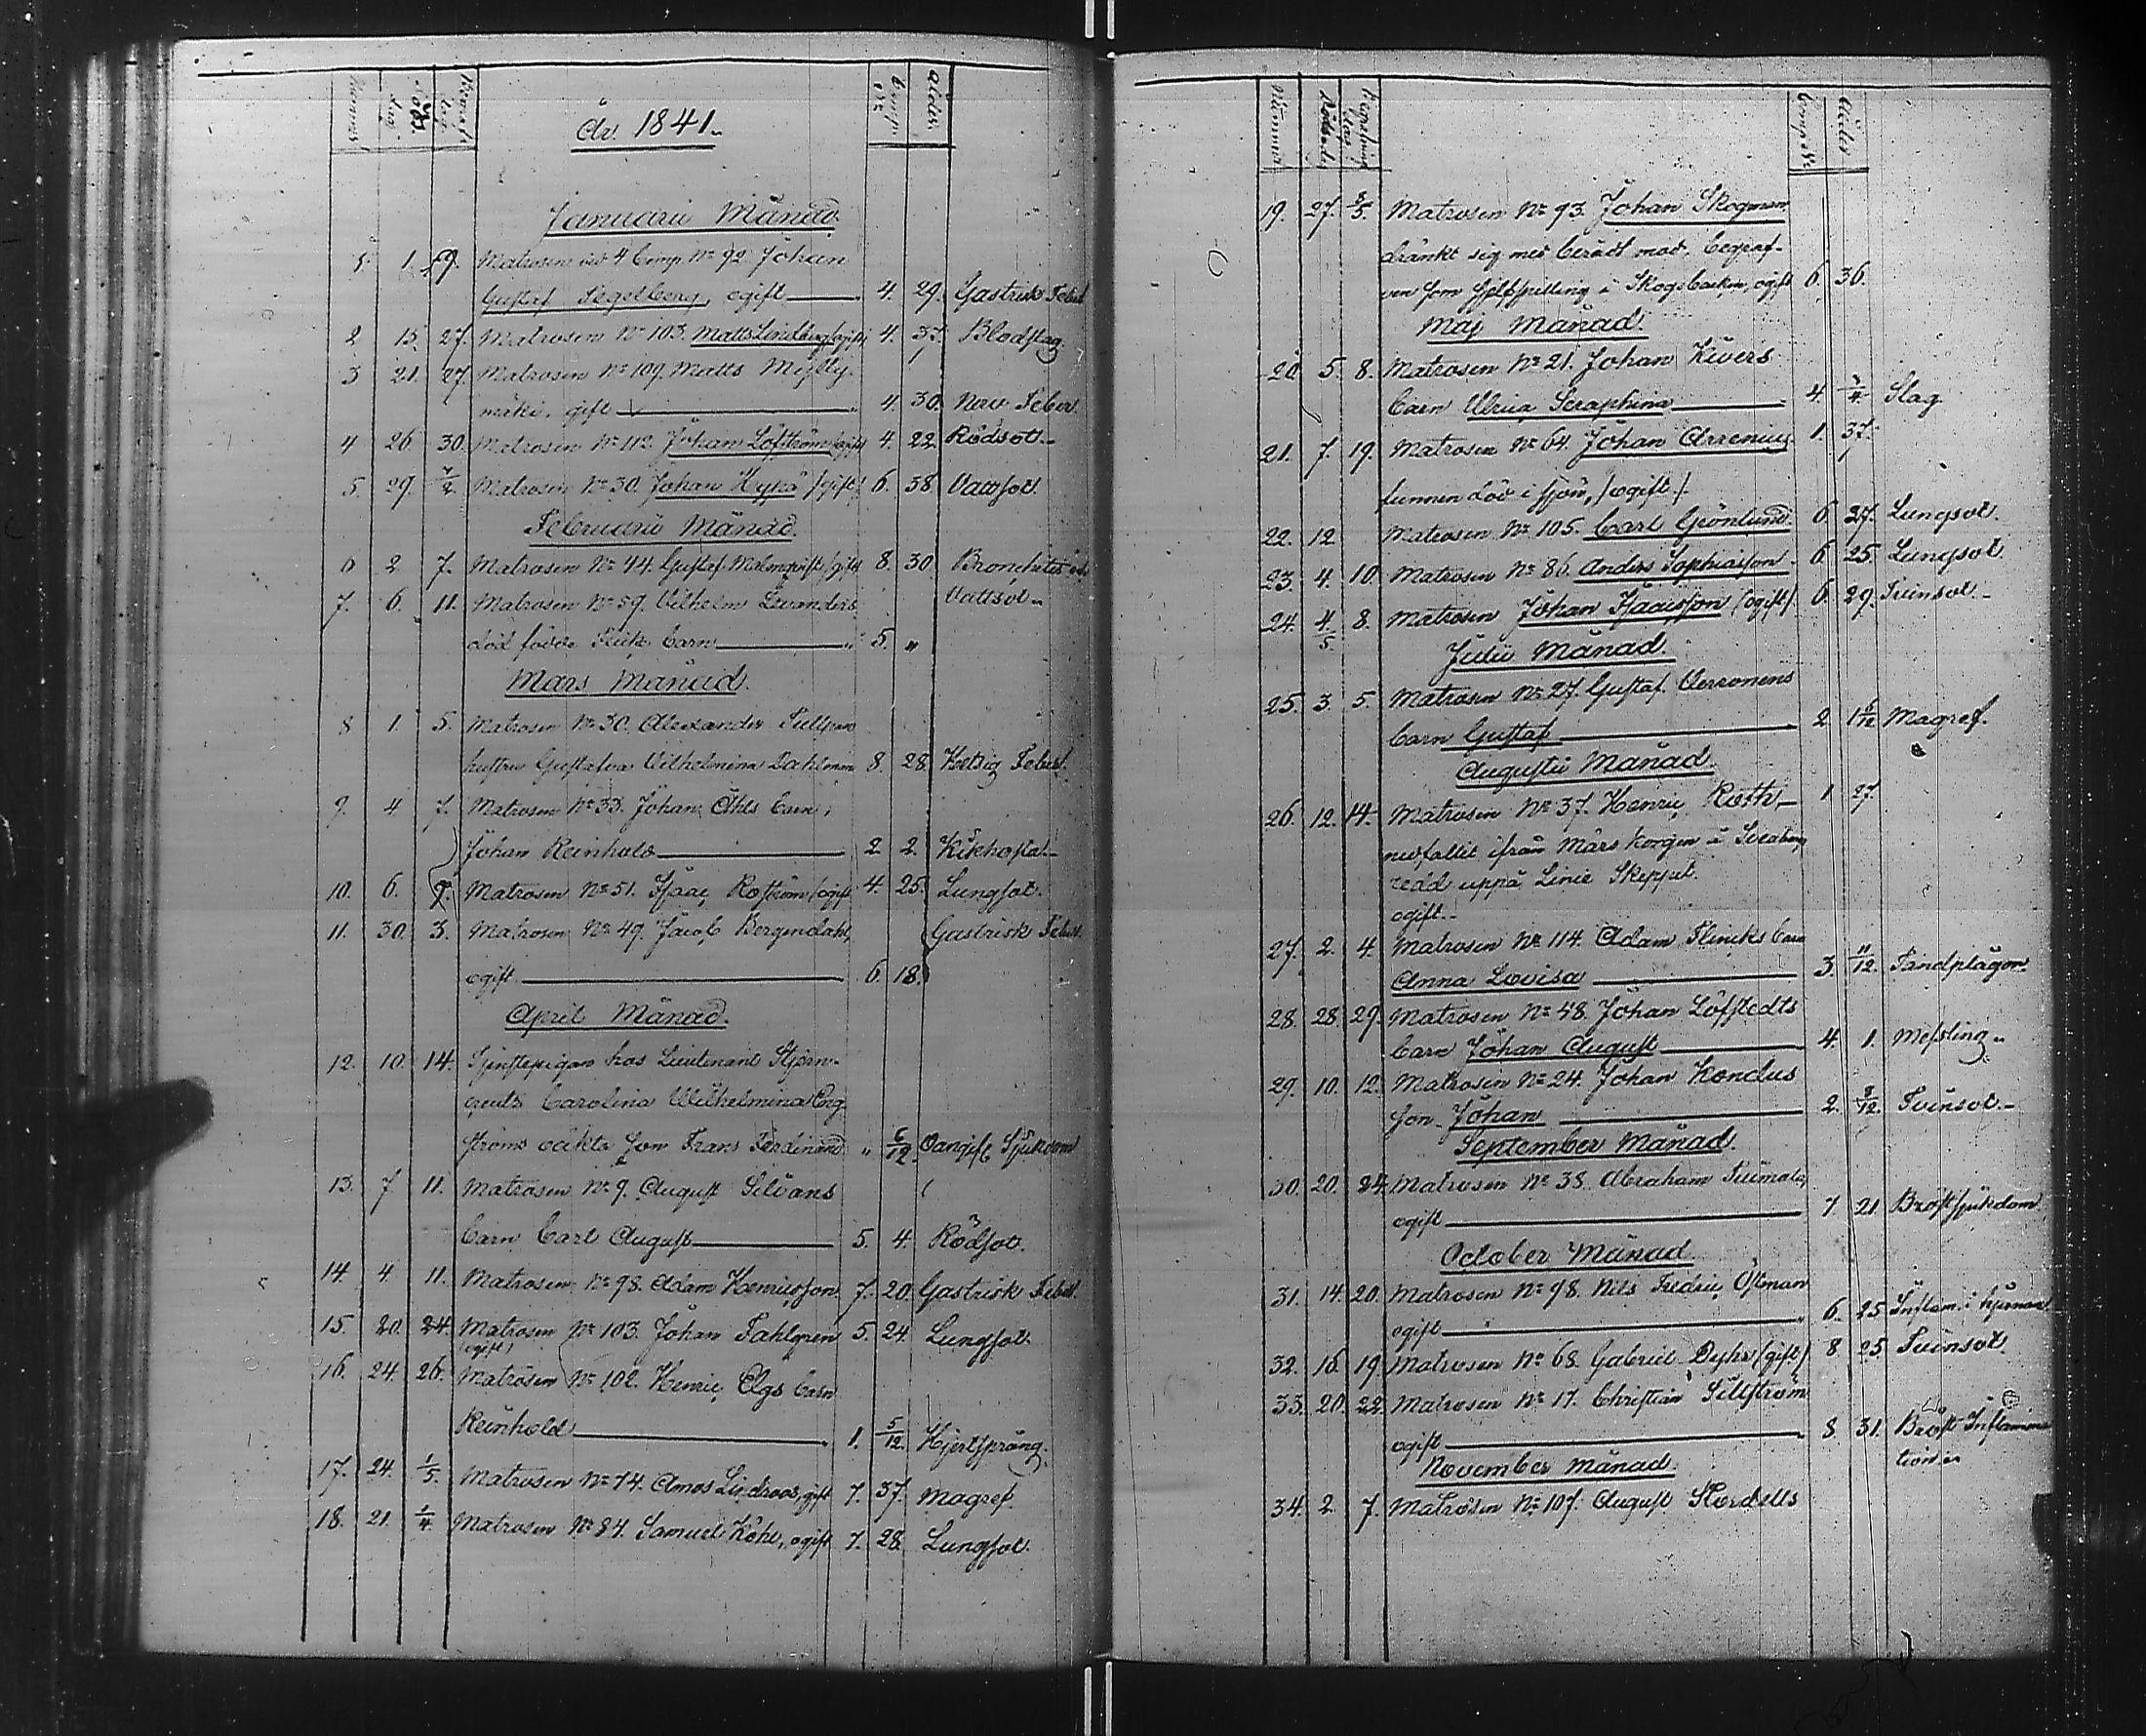 År 1841.
Nummer
Död dag
Begrafn. dag
Comp. N:o
Ålder.
Januarii Månad.
1. 1. 9. Matrosen vid 4 Comp. N:o 92 Johan
Gustaf Segelberg, ogift 4. 29. Gastrisk Feber
2 15. 27. Matrosen N:o 103. Matts Lindberg (ogift) 4. 37. Blodslag.
3 21. 27. Matrosen N:o 109. Matts
mäki. gift 4. 30. Nerv Feber.
4 26. 30. Matrosen N:o 112. Johan Löfström (ogift) 4. 22. Rödsot.
5. 29. 7/2. Matrosen N:o 30. Johan Hyrä (gift) 6. 38. Vattsot.
Februarii Månad.
6 2 7. Matrosen N:o 44. Gustaf Malmqvist (gift) 8. 30. Bronchitis
7. 6. 11. Matrosen N:o 59. Vilhelm Levanders Vattsot.
död födda flick barn 5. "
Mars Månad.
8 1. 5. Matrosen N:o 30. Alexander
hustru Gustafva Vilhelmina Dahlman 8. 28. Hetsig Feber.
9. 4 7. Matrosen N:o 33. Johan Åhls barn,
Johan Reinhold 2. 2. Kikhosta.
10. 6. 9. Matrosen N:o 51. Isaac Roström (ogift) 4. 25. Lungsot.
11. 30. 3. Matrosen N:o 49. Jacob Bergendahl, Gastrisk Feber.
ogift 6. 18.
April Månad.
12. 10. 14. Tjenstepigan hos Lieutenant Stjern-
creutz Carolina Wilhelmina Eng-
ströms oäkta son Frans Ferdinand " 6/12. Oangif. Sjukdom
13. 7 11. Matrosen N:o 9. August Silvans
barn Carl August 5. 4. Rödsot.
14. 4. 11. Matrosen N:o 98. Adam Henricsson 7. 20. Gastrisk Feber.
15. 20. 24. Matrosen N:o 103. Johan Fahlgren 5. 24. Lungsot.
(ogift)
16. 24. 26. Matrosen N:o 102. Henric Elgs barn
Reinhold 1. 5/12. Hjertsprång.
17. 24. 1/5. Matrosen N:o 74. Amos Lindroos, gift 7. 37. Magref.
18. 21. 1/4 Matrosen N:o 84. Samuel Köhl, ogift 7. 28. Lungsot.
Nummer
Begrafning
Comp. N:o
Ålder
19. 27. 2/5. Matrosen N:o 93. Johan Skogman
dränkt sig med berådt mod, begraf-
ven som sjelfspilling i Skogsbacken, ogift 6. 36.
Maj Månad.
20. 5. 8. Matrosen N:o 21. Johan Kivers
barn Ulrica Seraphina 4. 3/4. Slag
21. 7. 19. Matrosen N:o 64. Johan Arrenius 1. 37.
funnen död i sjön, (ogift).
22. 12 Matrosen N:o 105. Carl Grönlund 6 27. Lungsot.
23. 4. 10. Matrosen N:o 86. Anders Sophiasson 6 25. Lungsot
24. 4/5. 8. Matrosen Johan Isaacsson (ogift) 6. 29. Tvinsot.
Julii Månad.
25. 3. 5. Matrosen N:o 27. Gustaf Verronens
barn Gustaf 2 1 5/12 Magref.
Augustii Månad.
26. 12. 14. Matrosen N:o 37. Henric Roth 1 27.
nedfallit ifrån märs korgen å Sveaborgs
redd uppå Linie Skeppet.
ogift.
27. 2. 4. Matrosen N:o 114. Adam Flincks barn
Anna Lovisa 3. 11/12. Tandplågor.
28. 28. 29. Matrosen N:o 48. Johan Löfstedts
barn Johan August 4. 1. Messling.
29. 10. 12. Matrosen N:o 24. Johan Kondus
son Johan 2. 3/12. Tvinsot.
September Månad.
30. 20. 24. Matrosen N:o 38. Abraham
ogift 7 21 Bröstsjukdom
October Månad.
31. 14. 20. Matrosen N:o 98. Nils Fredric Östman
ogift 6. 25. Inflam. i hjernan
32. 16 19. Matrosen N:o 68. Gabriel Dyhr (gift) 8 25. Tvinsot.
33. 20. 22. Matrosen N:o 17. Christian Sillström
ogift 8. 31. Bröst Inflamma-
tion.
November Månad.
34. 2. 7. Matrosen N:o 107. August Kordells